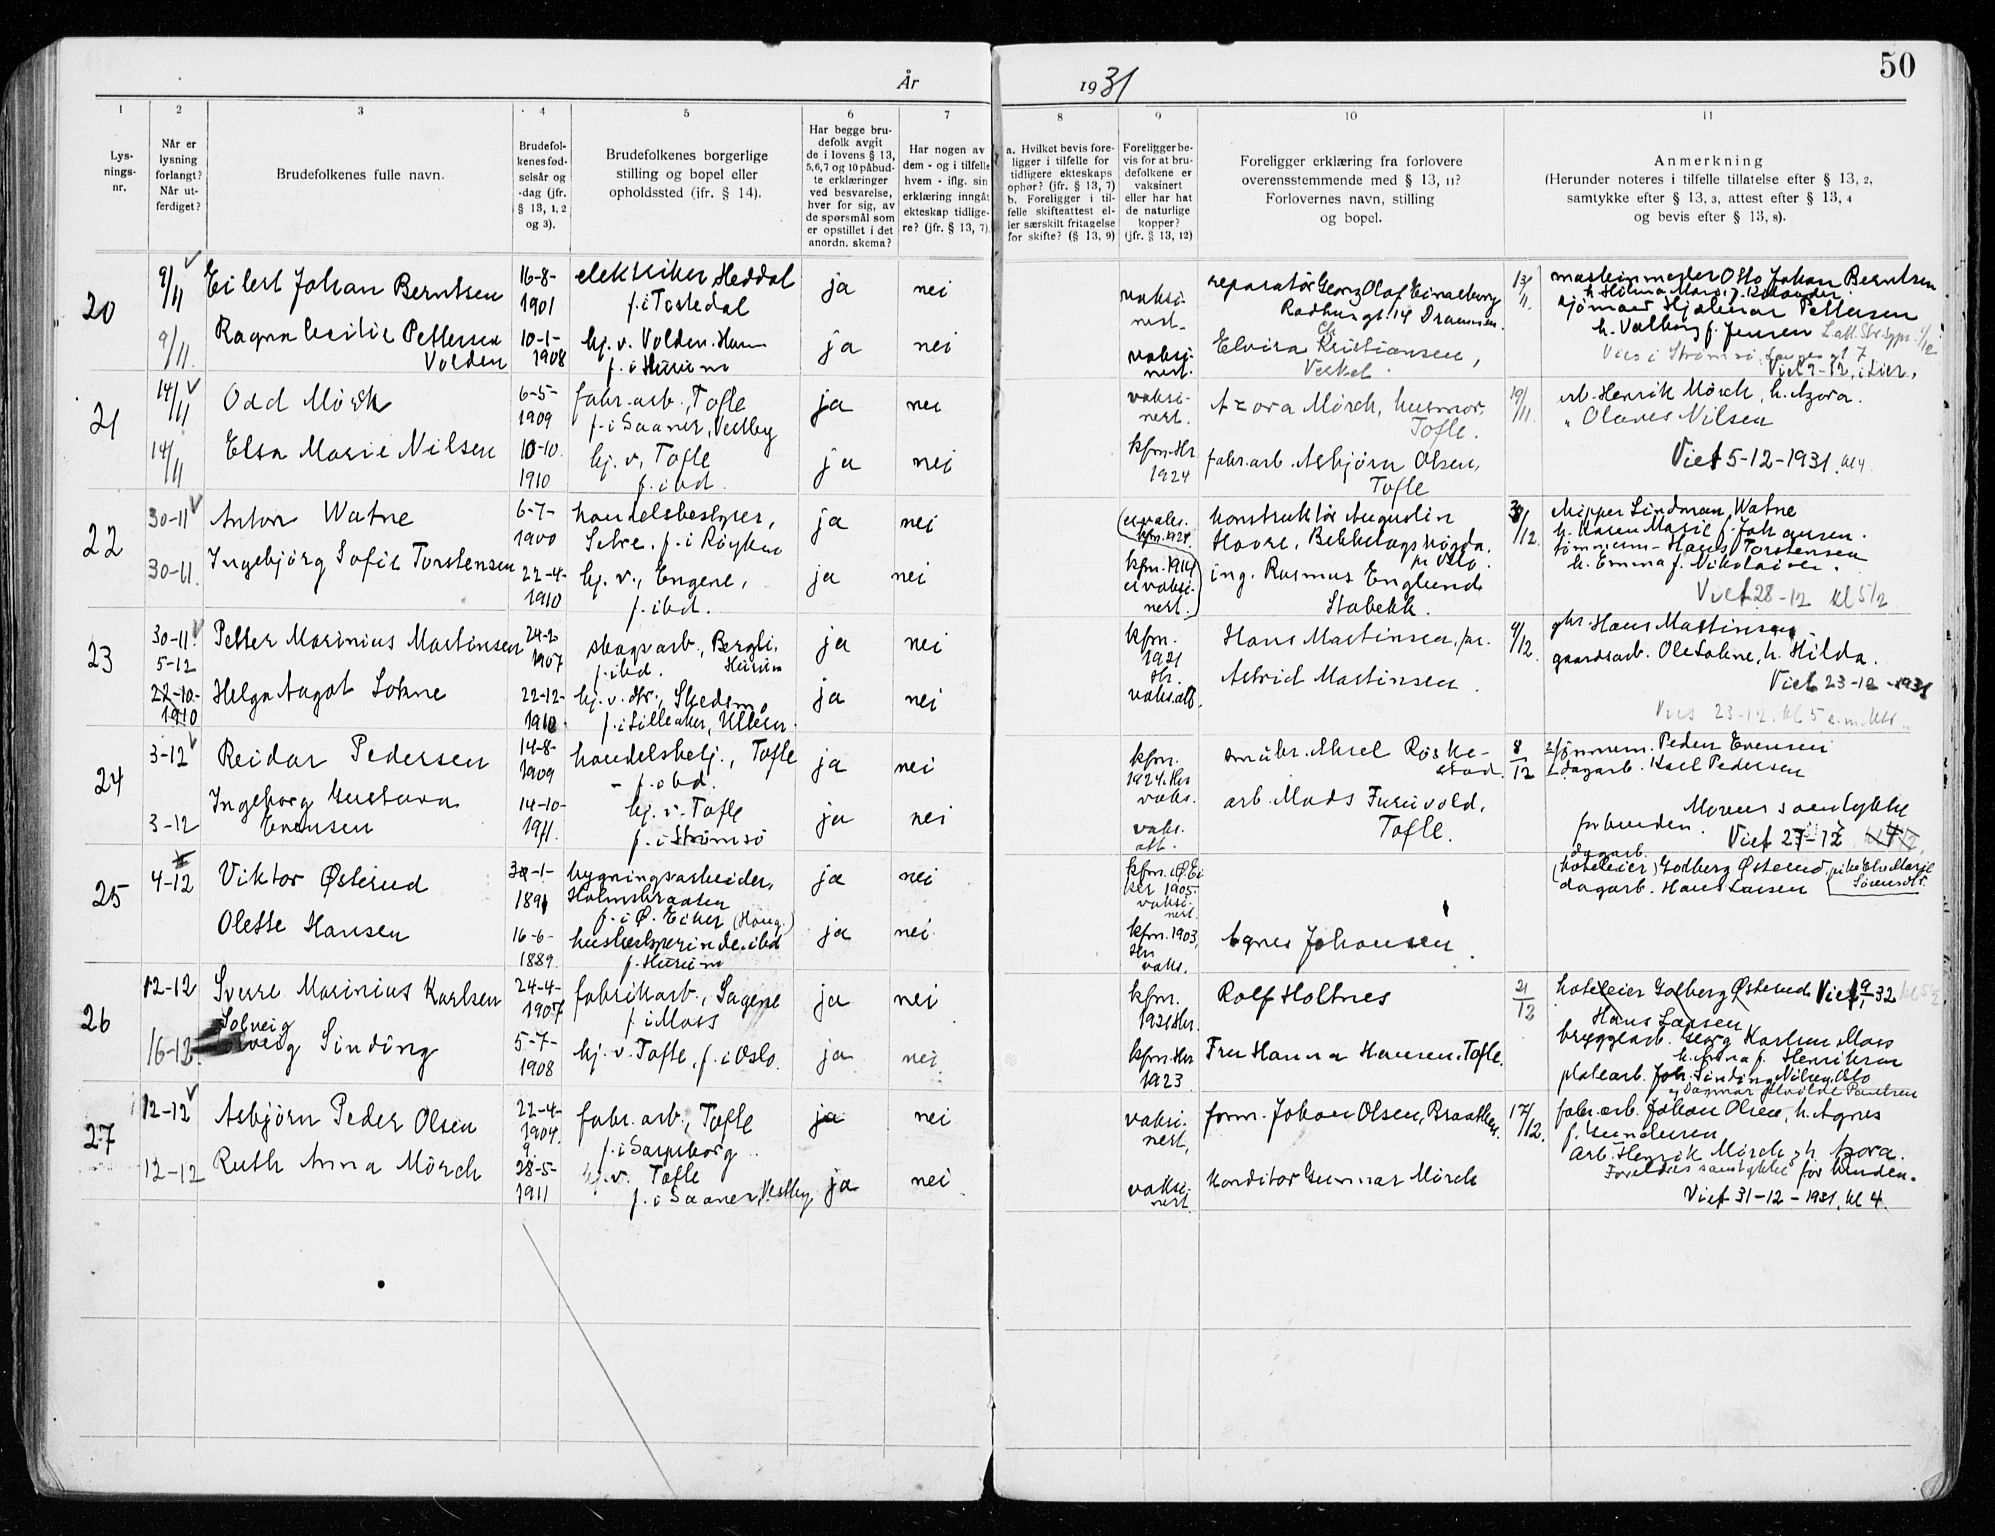 År 1931
50
1
2
3
4
5
6
7
8
9
10
11
Lys-
nings-
nr.
Når er
lysning
forlangt?
Når ut-
ferdiget?
Brudefolkenes fulle navn.
Brudefol-
kenes fød-
selsår og
-dag (jfr.
§ 13, 1, 2
og 3).
Brudefolkenes borgerlige
stilling og bopel eller
opholdssted (ifr. § 14).
Har begge bru-
defolk avgit
de i lovens § 13,
5,6,7 og 10 påbud-
te erklæringer
ved besvarelse,
hver for sig, av
de spørsmål som
er opstillet i det
anordn. skema?
Har nogen av
dem - og i tilfelle
hvem - iflg. sin
erklæring inngåt
ekteskap tidlige-
re? (jfr. § 13, 7).
a. Hvilket bevis fore-
ligger i tilfelle for
tidligere ekteskaps
ophør? (jfr. § 13, 7)
b. Foreligger i til-
felle skifteattest el-
ler særskilt fritagelse
for skifte? (§ 13, 9)
Foreligger be-
vis for at bru-
defolkene er
vaksinert
eller har hat
de naturlige
kopper?
(jfr. § 13, 12)
Foreligger erklæring fra forlovere
overensstemmende med § 13, 11?
Forlovernes navn, stilling
og bopel.
Anmerkning
(Herunder noteres i tilfelle tillatelse efter § 13, 2,
samtykke efter § 13, 3, attest efter § 13, 4
og bevis efter § 13, 8).
20
9/11
Eilert Johan Berntsen
16-8-
1901
elektriker, Heddal
f. i Tostedal
ja
nei
vaksi-
nert.
reparatør Georg Olaf
Raadhusgt. 14 Drammen.
13/11.
maskinmester Otto Johan Berntsen
9/11.
Ragna Cecilie Pettersen
Volden
10-1-
1908
hj. v. Volden. Hurum
f. i Hurum
ja
nei
vaksi-
nert.
Elvira Kristiansen,
sjømann Hjalmar Pettersen
h. Valborg f. Jensen
Viet 2-12, i Lier,
21
14/11
Odd Mörch
6-5-
1909
fabr. arb., Tofte
f. i Saaner, Vestby
ja
nei
vaksi-
nert.
Azora Mörch, husmor,
Tofte.
19/11.
arb. Henrik Mörch, h. Azora.
" Olaves Nilsen
14/11
Elsa Marie Nilsen
10-10.
1910
hj. v, Tofte
f. ibd.
ja
nei
kfm. Hr
1924
fabr. arb. Asbjørn Olsen,
Tofte
Viet 5-12-1931. kl 4.
22
30-11
Anton Watne
6-7-
1900
handelsbestyrer,
Sætre. f. i Røyken
ja
nei
(ei vaks.
kfm. 1924.
konstruktør Augustin
Hovre, Bekkelagshøgda.
pr Oslo.
3/12.
skipper Lindman Watne
h. Karen Marie f. Johansen.
30-11.
Ingebjörg Sofie Torstensen
22-4-
1910
hj. v., Engene,
f. ibd.
ja
nei
kfm. 1924
ei vaksi-
nert.)
ing. Rasmus Englund
Stabekk.
tömmerm- Hans Torstensen
h. Emma f. Nikolaisen.
Viet 28-12 kl 5 1/2
23
30-11
5-12
Petter Marinius Martinsen
24-2-
1907
skogsarb., Bergli,
f. ibd. Hurum
ja
nei
kfm.
1921
Hr.
Hans Martinsen,
9/12.
gbr. Hans Martinsen
22-10-
1910
Helga Aagot Lohne
22-12-
1910.
hj. v. Hr., Skedsmo
f. i Lilleaker, Ullern.
ja
nei
vaks. att.
Astrid Martinsen.
gaardsarb. Ole Lohne, h. Hilda.
Viet 23-12-1931
Vies 23-12. kl 5 e.m.
24
3-12
Reidar Pedersen
14-8-
1909
handelsbetj., Tofte
- f. ibd.
ja
nei
kfm.
1924. Hr
vaks.
småbr. Aksel Roske-
stad.
8/12
tömmerm. Peder Evensen
dagarb. Karl Pedersen
3-12
Ingeborg Gustava
Evensen
14-10-
1911.
hj. v. Tofte
f. i Strømsø
ja
nei
vaks.
att.
arb. Mads Furuvold,
Tofte.
Morens samtykke
for bruden.
Viet 27-12
25
4-12
Viktor Østerud
30-1-
1891
bygningsarbeider,
Holmsbraaten
f. i Ø. Eiker (Haug)
ja
nei
kfm. i Ø. Ei
ker 1905.
vaksi-
nert.
dagarb.
(hoteleier) Godberg Østerud
dagarb. Hans Larsen
Olette Hansen
16-6-
1889.
husbestyrerinde. ibd
f. Hurum
ja
nei.
kfm. 1903,
Hr
vaks.
Agnes Johansen.
26
12-12
Sverre Marinius Karlsen
24-4-
1907
fabrikarb., Sagene
f. i Moss
ja
nei
kfm.
1921 Hr.
Rolf Holtnes
21/12
hoteleier Godberg Østerud Viet 9/1 32
Hans Larsen
bryggearb. Georg Karlsen Moss
h. Anna f. Henriksen
16-12
Solveig
Sinding
5-7-
1908
hj. v. Tofte, f. i Oslo.
ja
nei.
kfm. Hr
1923
Fru Hanna Hansen. Tofte.
platearb. Joh. Sinding Oslo
27
12-12
Asbjörn Peder Olsen
22-4-
1904.
9.
fabr. arb., Tofte
f. i Sarpsborg
ja
nei
vaksi-
nert,
form. Johan Olsen, Braathen.
17/12.
fabr. arb. Johan Olsen, h. Agnes
f. Gundersen
12-12
Ruth Anna Mörch
28-5-
1911
hj. v. Tofte
f. i Saaner, Vestby
ja
nei
vaksi-
nert.
Konditor Gunnar Mörch
arb. Henrik Mörch, h. Azora.
Foreldres samtykke for bruden.
Viet 31-12-1931. kl 4.